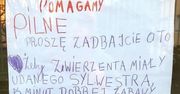 POMAGAMY
PILNE
PROSZĘ ZADBAJCIE O TO
ŻEBY ZWIERZENTA MIAŁY
UDANEGO SYLWESTRA,
15 MINUT DOBREJ ZABAWY